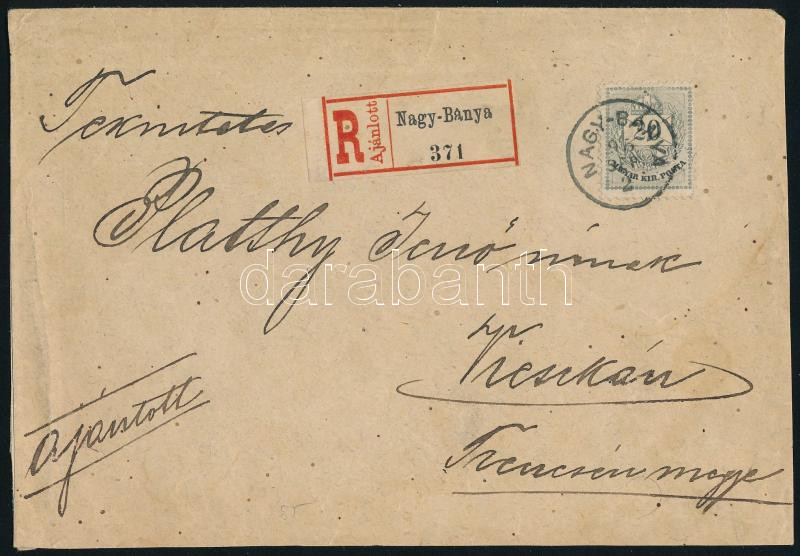 Tekintetes
R
Ajánlott
Nagy-Bánya
371
NAGY-BÁNYA
20
MAGYAR KIR. POSTA
Platthy Jenő úrnak
darabanth
Ajánlott
Trencsén megye